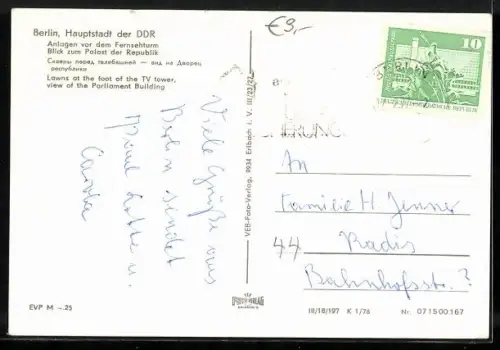 Berlin, Hauptstadt der DDR
Anlagen vor dem Fernsehturm
Blick zum Palast der Republik
Скверы перед телебашней — вид на Дворец
республики
Lawns at the foot of the TV tower,
view of the Parliament Building
€3,-
10
Viele Grüße aus
Berlin sendet
Lotte u.
VEB-Foto-Verlag, 9934 Erlbach i. V. III/23/27
An
Familie H. Jenner
44 Radis
Bahnhofsstr. ?
EVP M –.25
III/18/197 K 1/76 Nr. 071500167